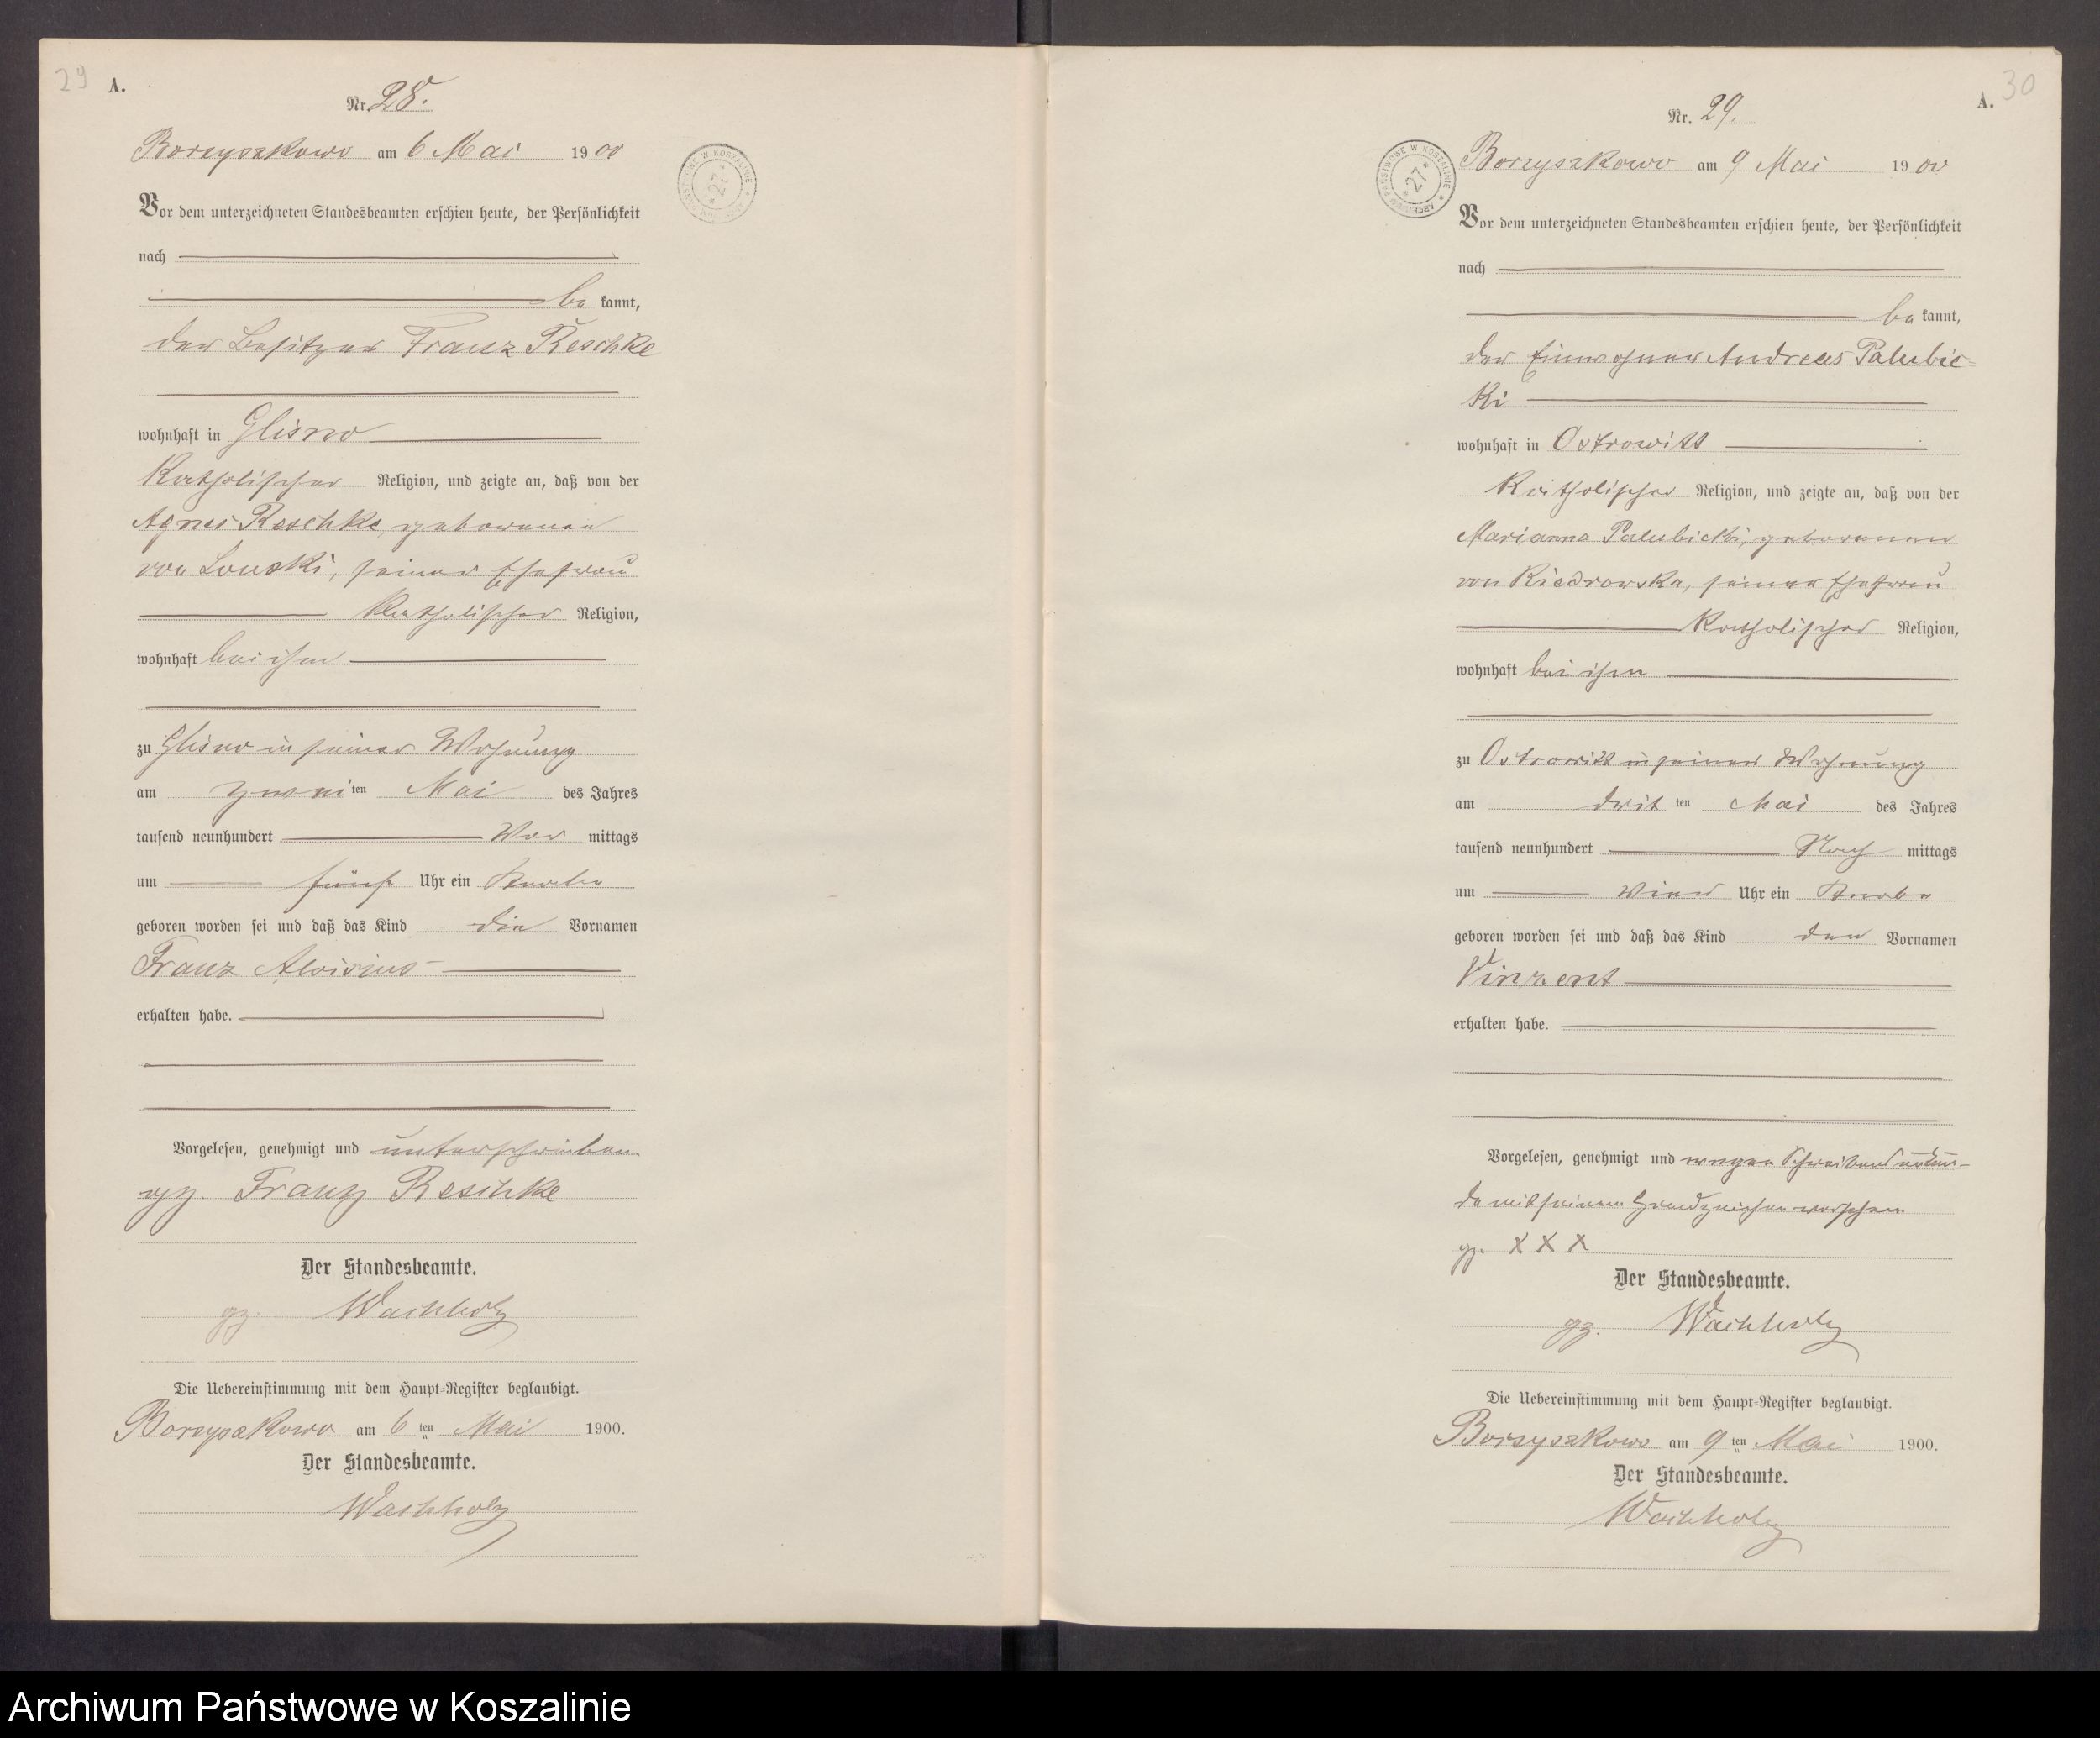 29 A.
Nr. 28.
Borzyszkowo am 6 Mai 1900
Vor dem unterzeichneten Standesbeamten erschien heute, der Persönlichkeit
nach
be kannt,
der Besitzer Franz Reschke
wohnhaft in Glisno
katholischer Religion, und zeigte an, daß von der
Agnes Reschke, geborenen
von Lonski, seiner Ehefrau
katholischer Religion,
wohnhaft bei ihm
zu Glisno in seiner Wohnung
am zweiten Mai des Jahres
tausend neunhundert Vor mittags
um fünf Uhr ein Knabe
geboren worden sei und daß das Kind die Vornamen
Franz Aloisius
erhalten habe.
Vorgelesen, genehmigt und unterschrieben.
gz. Franz Reschke
Der Standesbeamte.
gz. Wachholz
Die Uebereinstimmung mit dem Haupt-Register beglaubigt.
Borzyszkowo am 6 ten Mai 1900.
Der Standesbeamte.
Wachholz
ARCHIWUM PAŃSTWOWE W KOSZALINIE *27*
A. 30
Nr. 29.
Borzyszkowo am 9 Mai 1900
Vor dem unterzeichneten Standesbeamten erschien heute, der Persönlichkeit
nach
be kannt,
der Einwohner Andreas Palubic-
ki
wohnhaft in Ostrowitt
katholischer Religion, und zeigte an, daß von der
Marianna Palubicki, geborenen
von Kiedrowska, seiner Ehefrau
katholischer Religion,
wohnhaft bei ihm
zu Ostrowitt in seiner Wohnung
am drit ten Mai des Jahres
tausend neunhundert Nach mittags
um vier Uhr ein Knabe
geboren worden sei und daß das Kind den Vornamen
Vinzent
erhalten habe.
Vorgelesen, genehmigt und wegen Schreibens unkun-
de mit seinem Handzeichen versehen
gz. X X X
Der Standesbeamte.
gz. Wachholz
Die Uebereinstimmung mit dem Haupt-Register beglaubigt.
Borzyszkowo am 9 ten Mai 1900.
Der Standesbeamte.
Wachholz
ARCHIWUM PAŃSTWOWE W KOSZALINIE *27*
Archiwum Państwowe w Koszalinie